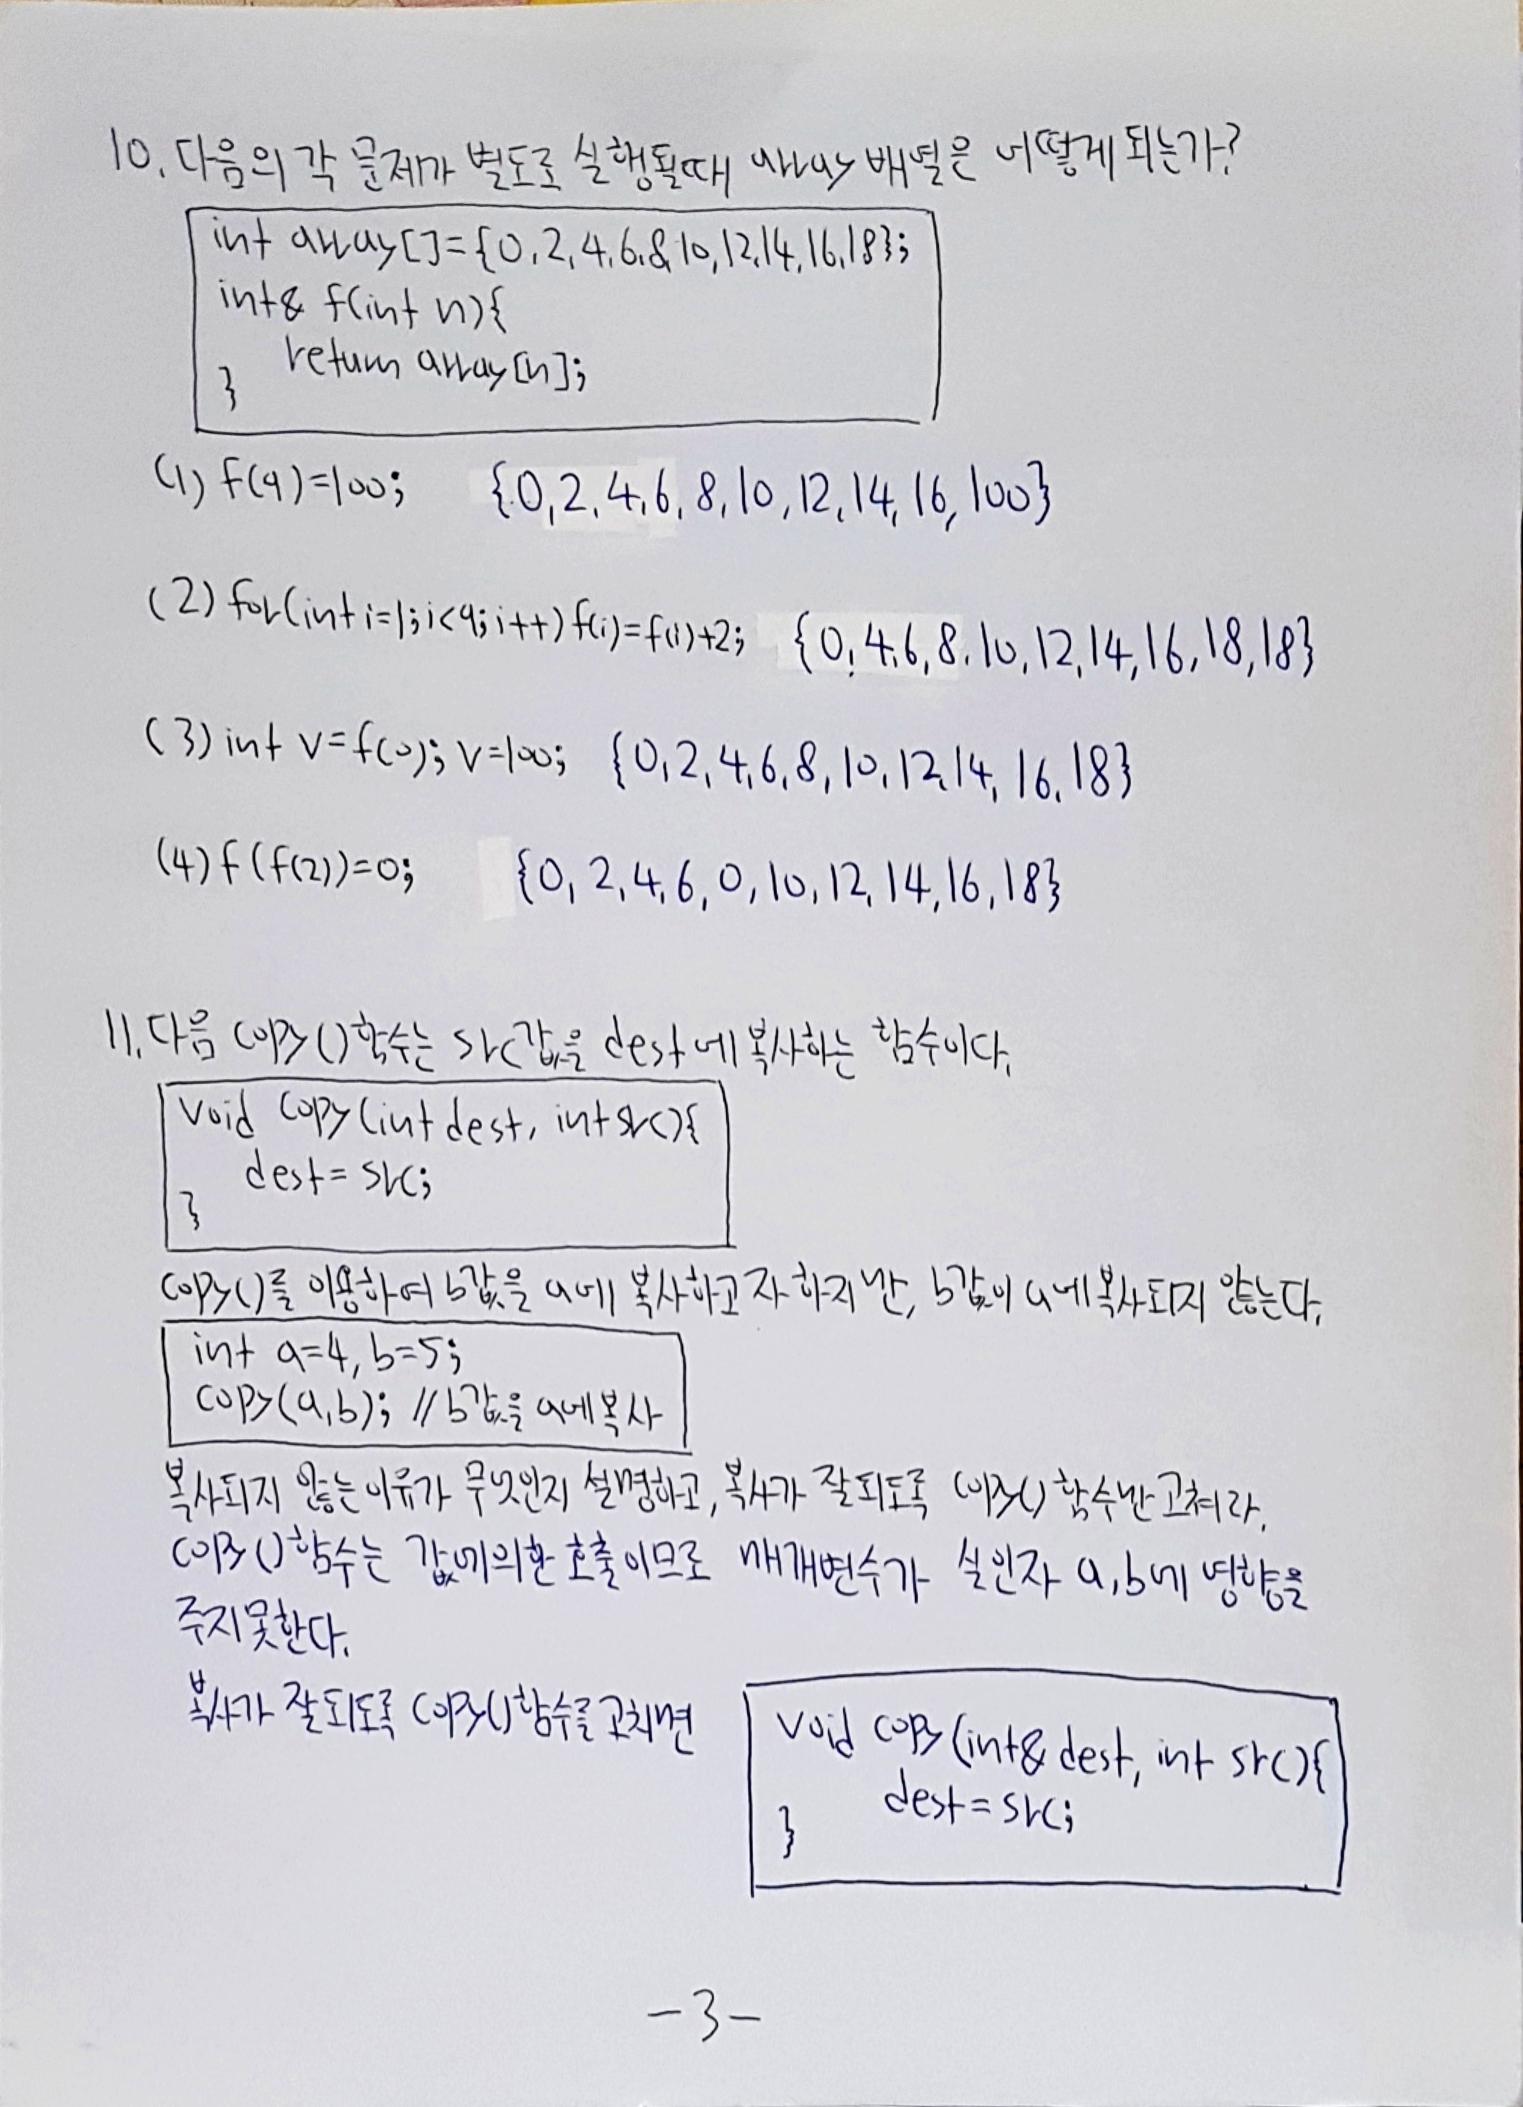 10. 다음의 각 문제가 별도로 실행될때 array 배열은 어떻게 되는가?
int array[]={0,2,4,6,8,10,12,14,16,18};
int& f(int n){
return array[n];
}
(1) f(9)=100; {0,2,4,6,8,10,12,14,16,100}
(2) for(int i=1;i<9;i++) f(i)=f(i)+2; {0,4,6,8,10,12,14,16,18,18}
(3) int v=f(0); v=100; {0,2,4,6,8,10,12,14,16,18}
(4) f(f(2))=0; {0,2,4,6,0,10,12,14,16,18}
11. 다음 copy()함수는 src값을 dest에 복사하는 함수이다.
void copy(int dest, int src){
dest=src;
}
copy()를 이용하여 b값을 a에 복사하고자 하지만, b값이 a에 복사되지 않는다.
int a=4, b=5;
copy(a,b); //b값을 a에 복사
복사되지 않는 이유가 무엇인지 설명하고, 복사가 잘 되도록 copy()함수만 고쳐라.
copy()함수는 값에의한 호출이므로 매개변수가 실인자 a,b에 영향을
주지못한다.
복사가 잘 되도록 copy()함수를 고치면
void copy(int& dest, int src){
dest=src;
}
-3-